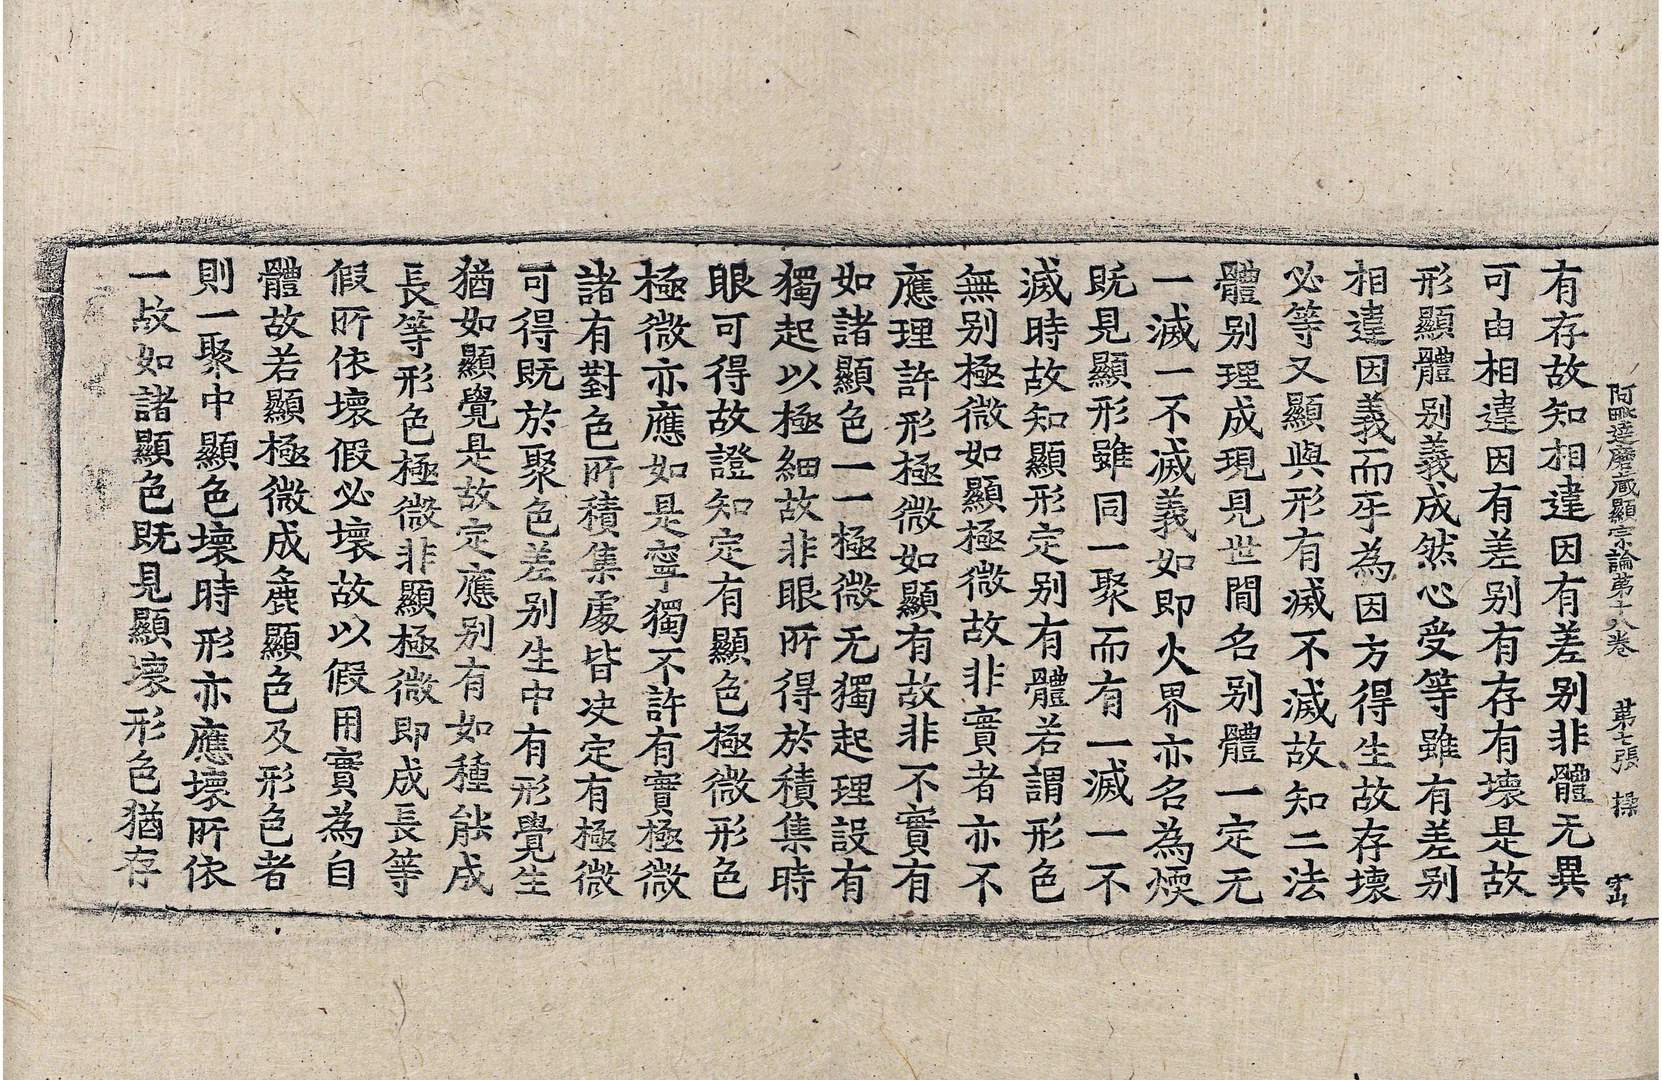 阿毗達磨藏顯宗論第十八卷 第七張 操
有存故知相違因有差别非體无異
可由相違因有差别有存有壞是故
形顯體别義成然心受等雖有差别
相違因義而乎為因方得生故存壞
必等又顯與形有滅不滅故知二法
體别理成現見世間名别體一定无
一滅一不滅義如即火界亦名為煗
既見顯形雖同一聚而有一滅一不
滅時故知顯形定别有體若謂形色
無别極微如顯極微故非實者亦不
應理許形極微如顯有故非不實有
如諸顯色一一極微无獨起理設有
獨起以極細故非眼所得於積集時
眼可得故證知定有顯色極微形色
極微亦應如是寧獨不許有實極微
諸有對色所積集處皆决定有極微
可得既於聚色差别生中有形覺生
猶如顯覺是故定應别有如種能成
長等形色極微非顯極微即成長等
假所依壞假必壞故以假用實為自
體故若顯極微成麁顯色及形色者
則一聚中顯色壞時形亦應壞所依
一故如諸顯色既見顯壞形色猶存